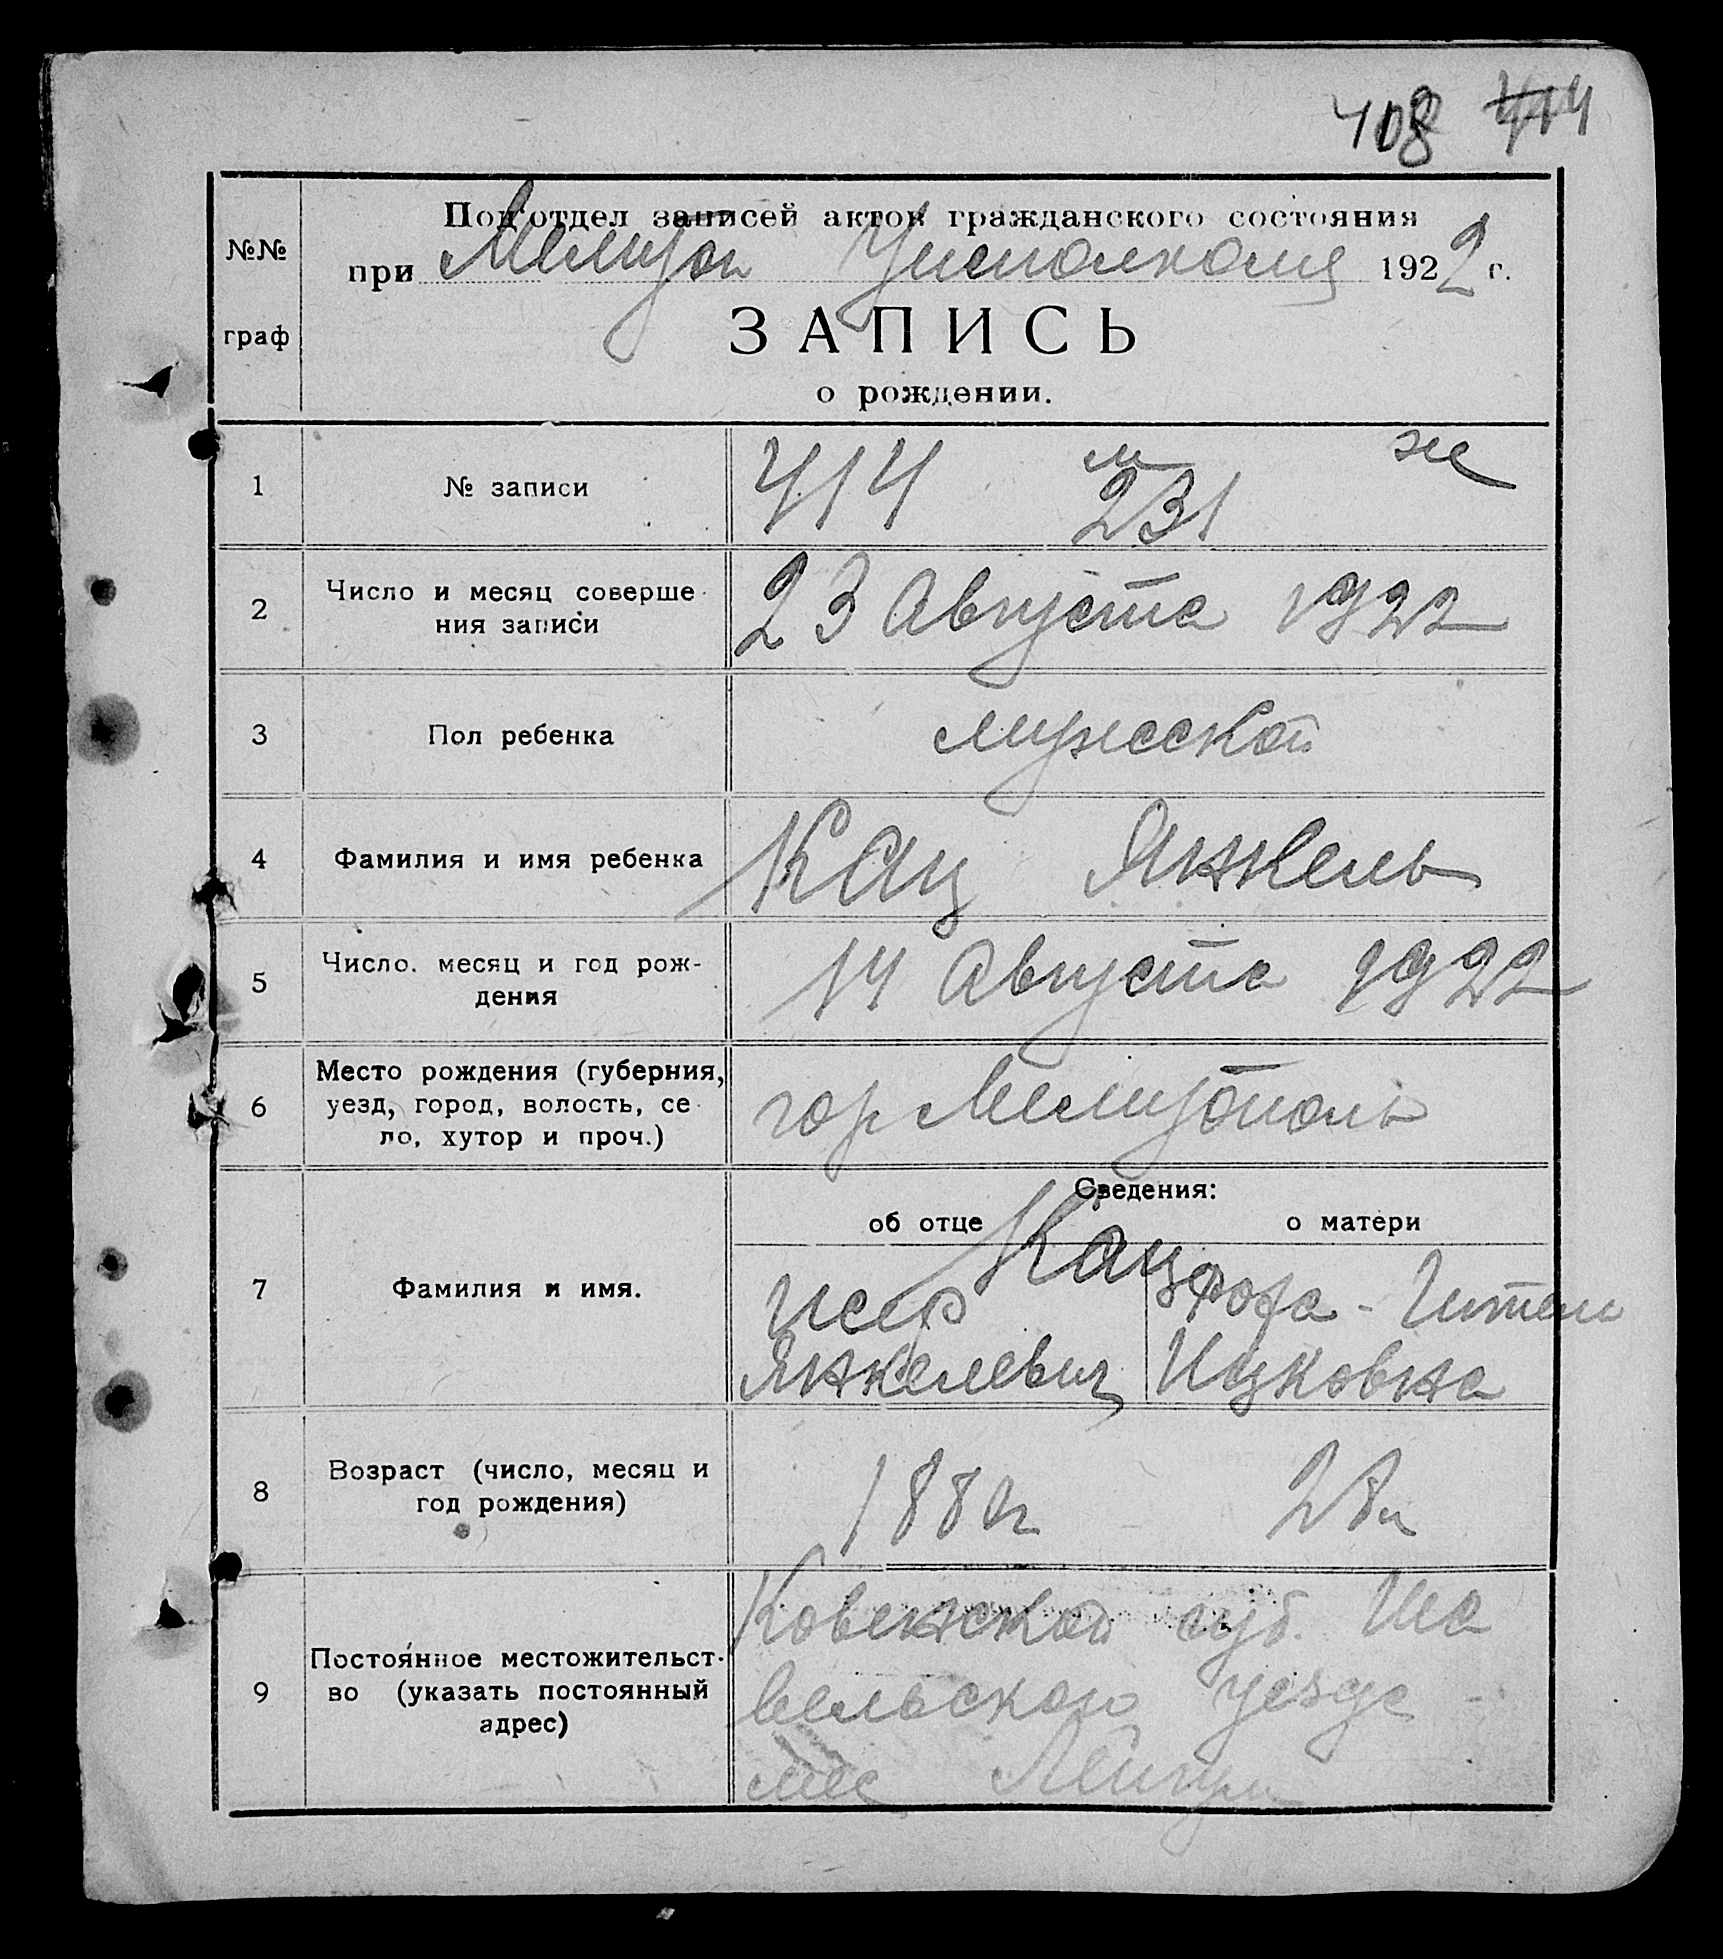 408 414
Подотдел записей актов гражданского состояния
№№
при Мелитоп Уисполкоме 1922 г.
граф
ЗАПИСЬ
о рождении.
1 № записи 414 м 231 ж
2 Число и месяц соверше-
ния записи 23 Августа 1922
3 Пол ребенка мужеской
4 Фамилия и имя ребенка Кац Янкель
5 Число. месяц и год рож-
дения 14 Августа 1922
6 Место рождения (губерния,
уезд, город, волость, се-
ло, хутор и проч.) гор Мелитополь
Сведения:
об отце о матери
Кац
7 Фамилия и имя.
Исер
Янкелевич
Фрода - Гители
Ицковна
8 Возраст (число, месяц и
год рождения) 1880г 28л
9 Постоянное местожительст-
во (указать постоянный
адрес)
Ковенской губ. Ша
вельского уезда
мес